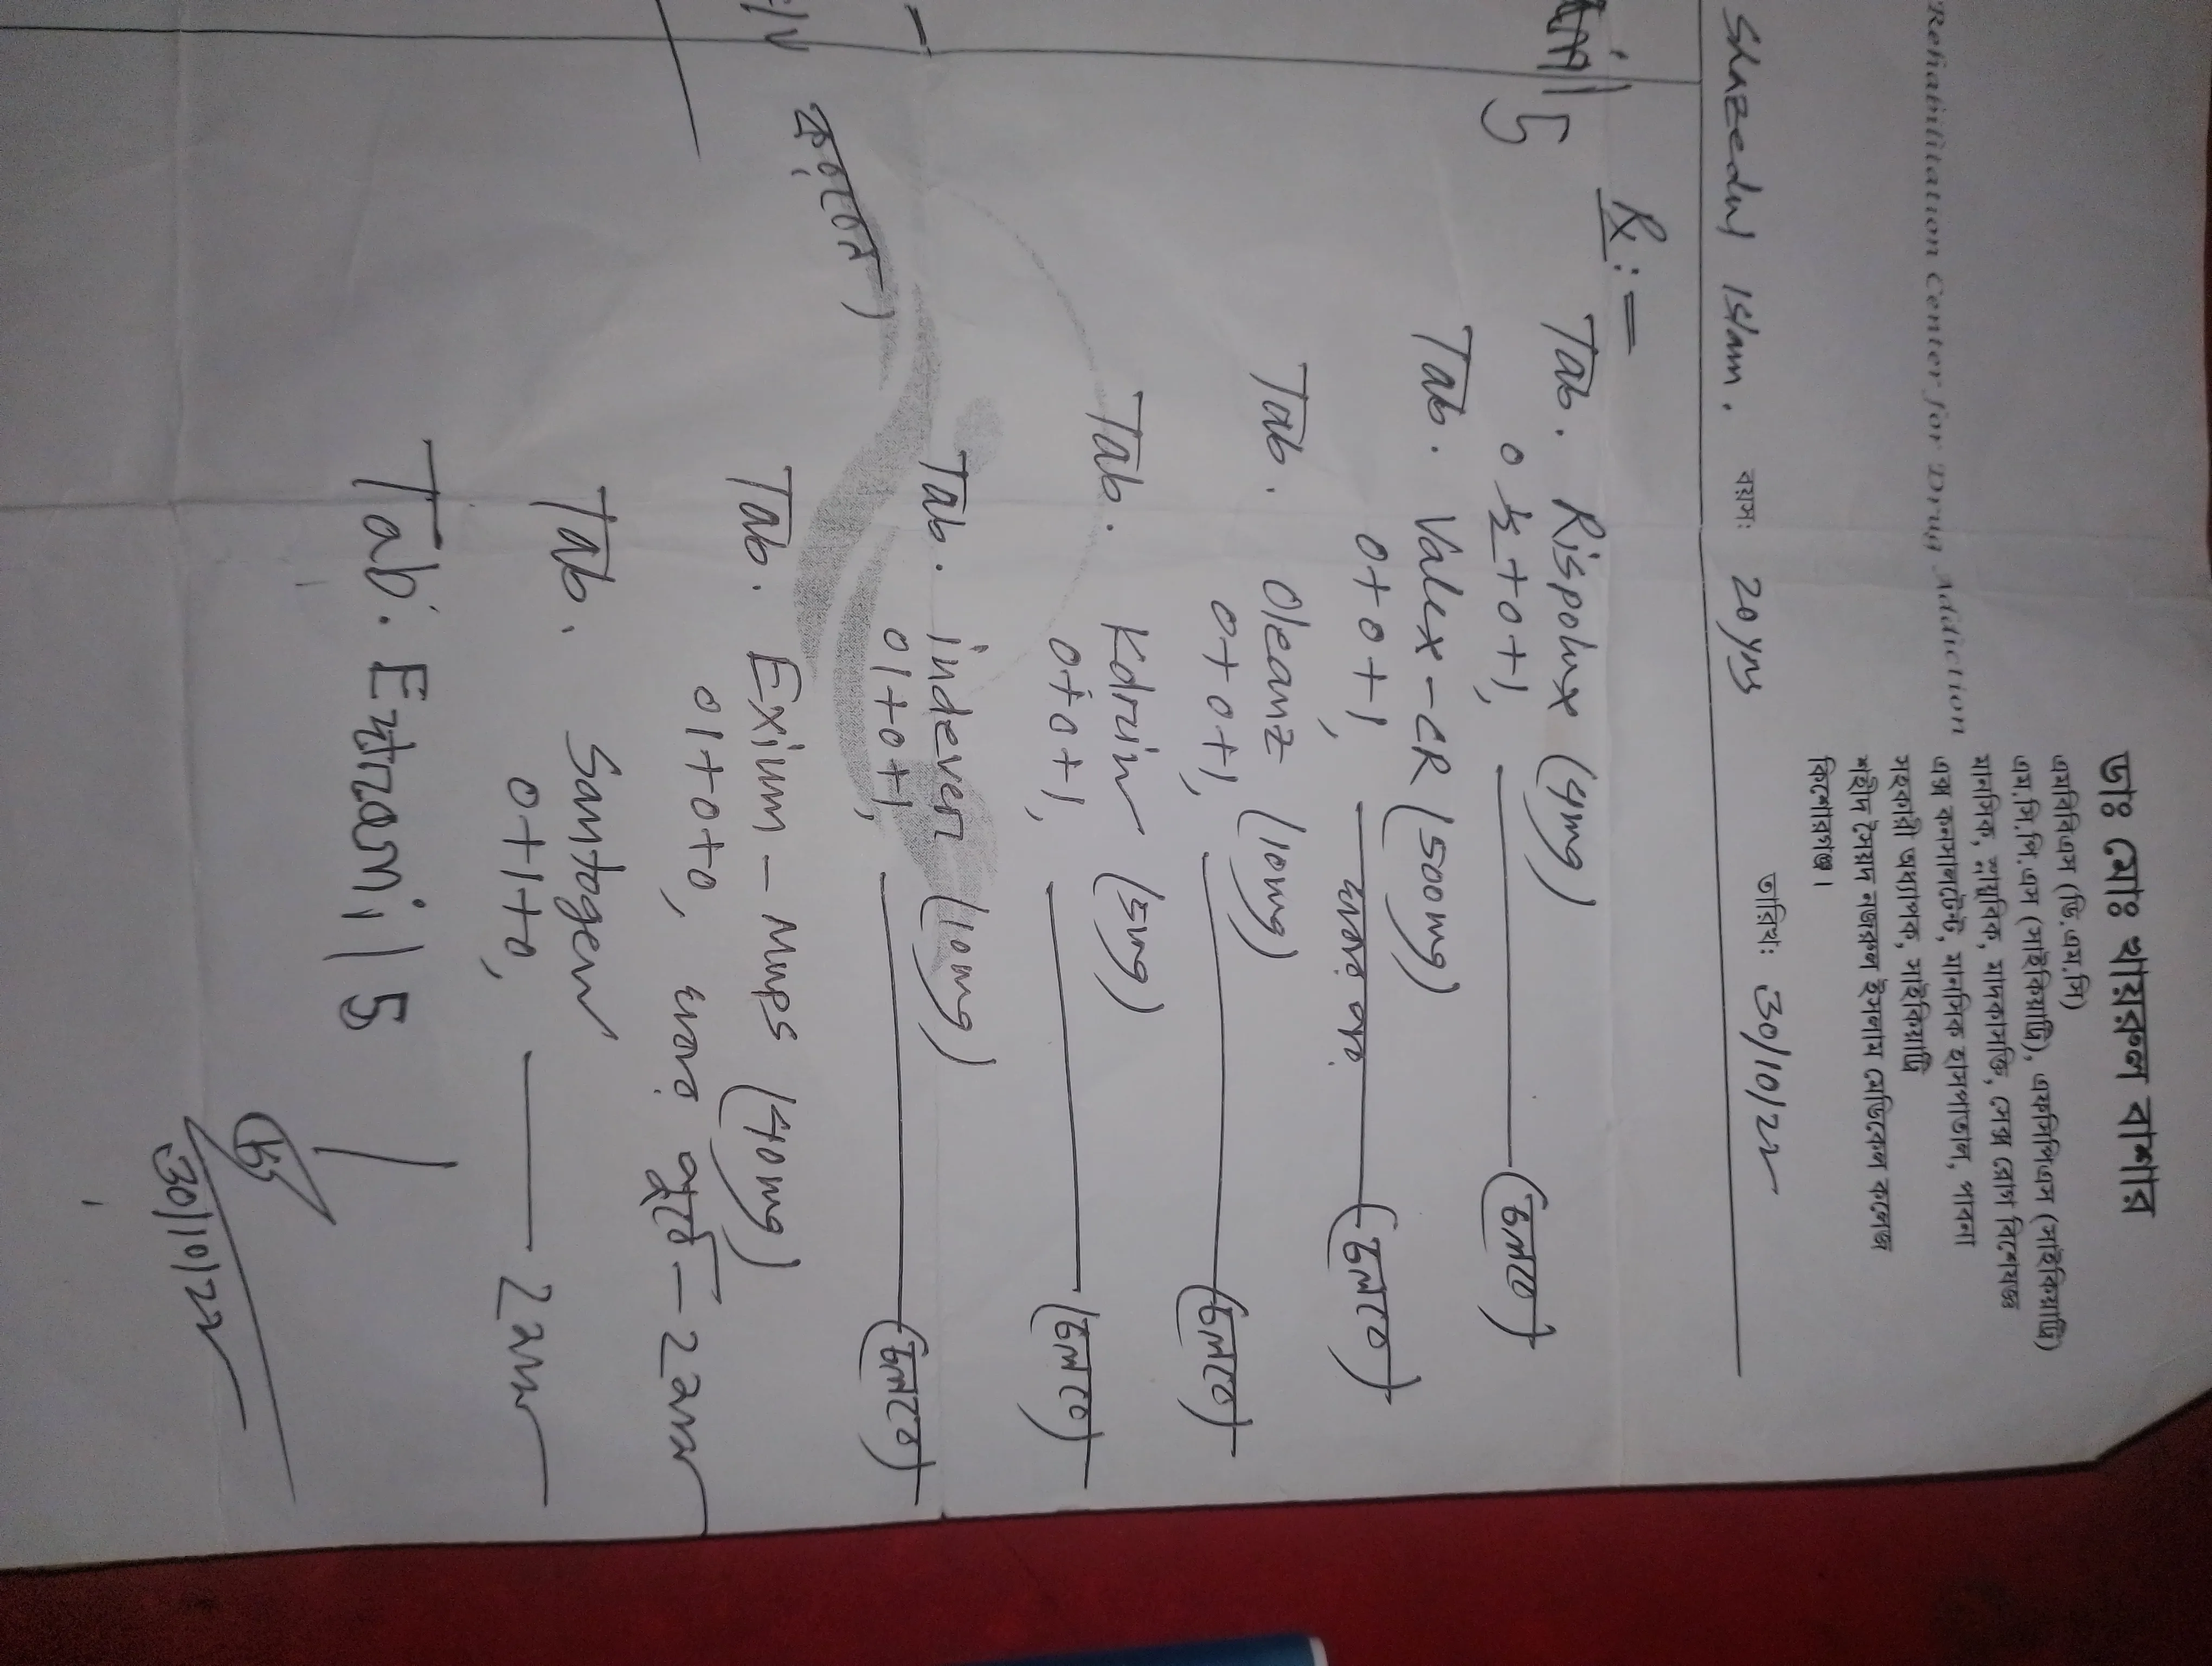 ডাঃ মোঃ খায়রুল বাশার
এমবিবিএস (ডি.এম.সি)
এম.সি.পি.এস (সাইকিয়াট্রি), এফসিপিএস (সাইকিয়াট্রি)
মানসিক, স্নায়ুবিক, মাদকাসক্তি, সেক্স রোগ বিশেষজ্ঞ
এক্স কনসালটেন্ট, মানসিক হাসপাতাল, পাবনা
সহকারী অধ্যাপক, সাইকিয়াট্রি
শহীদ সৈয়দ নজরুল ইসলাম মেডিকেল কলেজ
কিশোরগঞ্জ।
Rehabilitation Center for Drug Addiction
Shazedul Islam. বয়সঃ 20 yrs তারিখঃ 30/10/22
Rx:=
Tab. Rispolux (4mg)
0 ½ + 0 + 1, (চলবে)
Tab. Valex-CR (500mg)
0 + 0 + 1, খাবার পর (চলবে)
Tab. Oleanz (10mg)
0 + 0 + 1, (চলবে)
Tab. Kdrin (5mg)
0 + 0 + 1, (চলবে)
Tab. indever (10mg)
01 + 0 + 1, (চলবে)
Tab. Exium - Mups (40mg)
01 + 0 + 0, খাবার পূর্বে - 2 মাস
Tab. Santogen
0 + 1 + 0, 2 মাস
Tab. Extranil 5
30/10/22